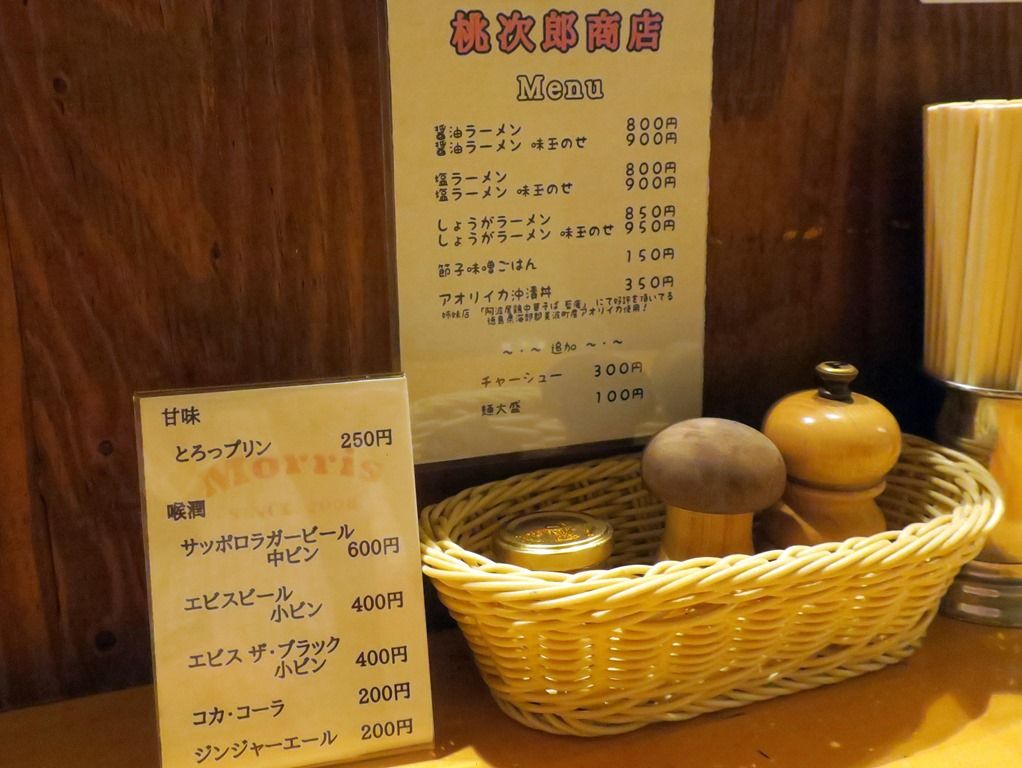 桃次郎商店
Menu
醤油ラーメン 800円
醤油ラーメン 味玉のせ 900円
塩ラーメン 800円
塩ラーメン 味玉のせ 900円
しょうがラーメン 850円
しょうがラーメン 味玉のせ 950円
節子味噌ごはん 150円
アオリイカ沖漬丼 350円
姉妹店 「阿波尾鶏中華そば 藍庵」 にて好評を頂いてる
徳島県海部郡美波町産アオリイカ使用!
~・~ 追加 ~・~
チャーシュー 300円
麺大盛 100円
甘味
とろっプリン 250円
Morris
SINCE 2008
喉潤
サッポロラガービール
中ビン 600円
エビスビール
小ビン 400円
エビス ザ・ブラック
小ビン 400円
コカ・コーラ 200円
ジンジャーエール 200円